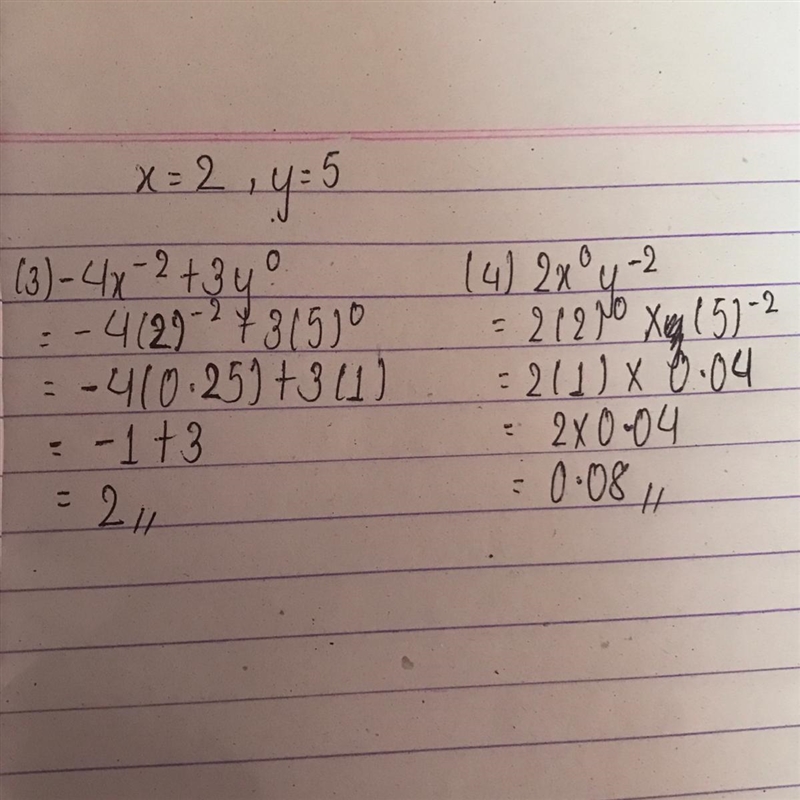 x = 2 , y = 5
(3) -4x⁻² + 3y⁰
= -4(2)⁻² + 3(5)⁰
= -4(0.25) + 3(1)
= -1 + 3
= 2 //
(4) 2x⁰y⁻²
= 2(2)⁰ × (5)⁻²
= 2(1) × 0.04
= 2×0.04
= 0.08 //